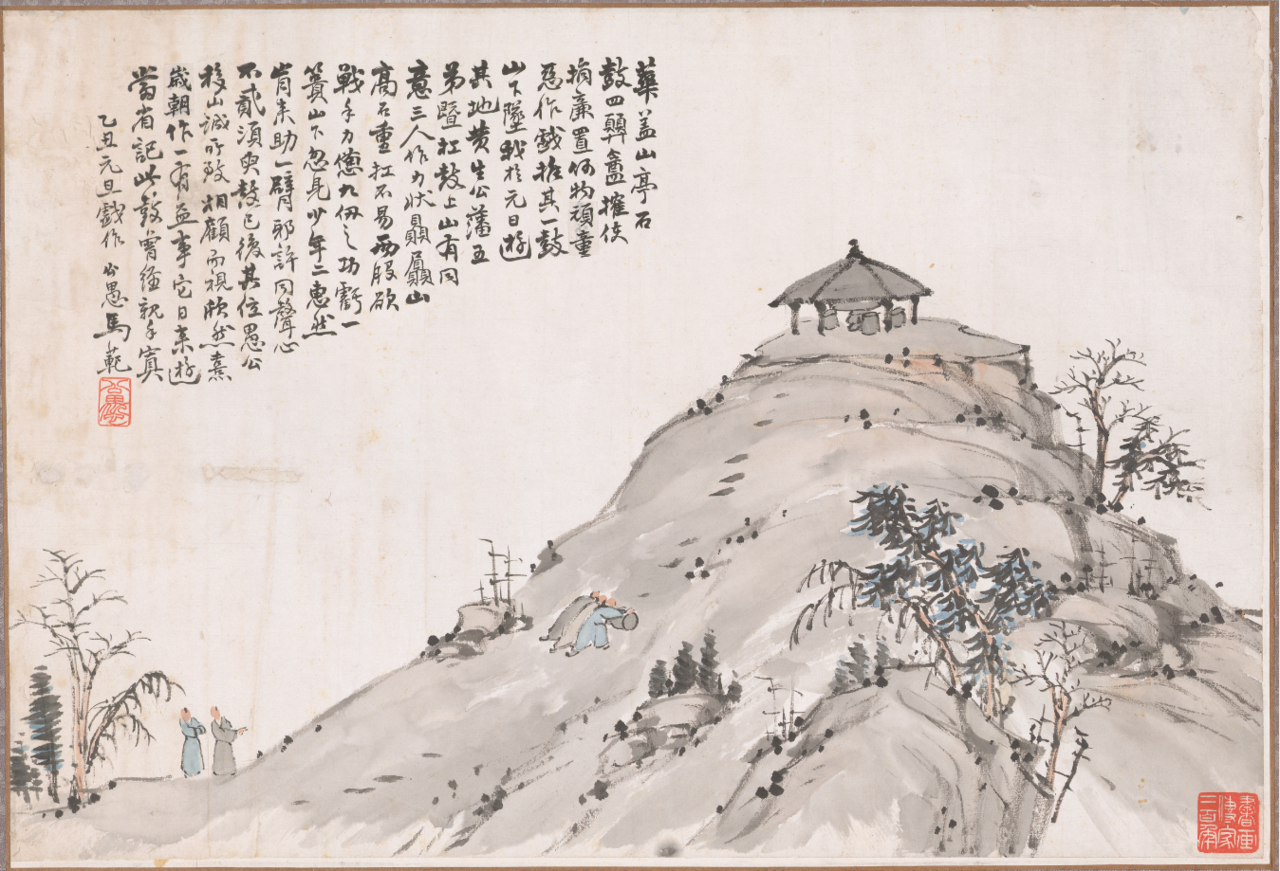 華蓋山亭石
鼓四盦榷使
捐廉置何物頑童
惡作戲推其一鼓
山下墜我於元日遊
其地黃生公藩五
弟暨扛鼓上山有同
意三人作力狀贔屭山
高石重扛不易兩股欲
戰手力憊九仞之功虧一
簣山下忽見少年二惠然
肯來助一臂邪許同聲心
不貳須臾鼓已復其位愚公
移山誠所致相顧而視欣然熹
歲朝作一有益事它日來遊
當省記此鼓曾經親手寘
乙丑元旦戲作 公愚馬範
公愚
書畫傳家三百年